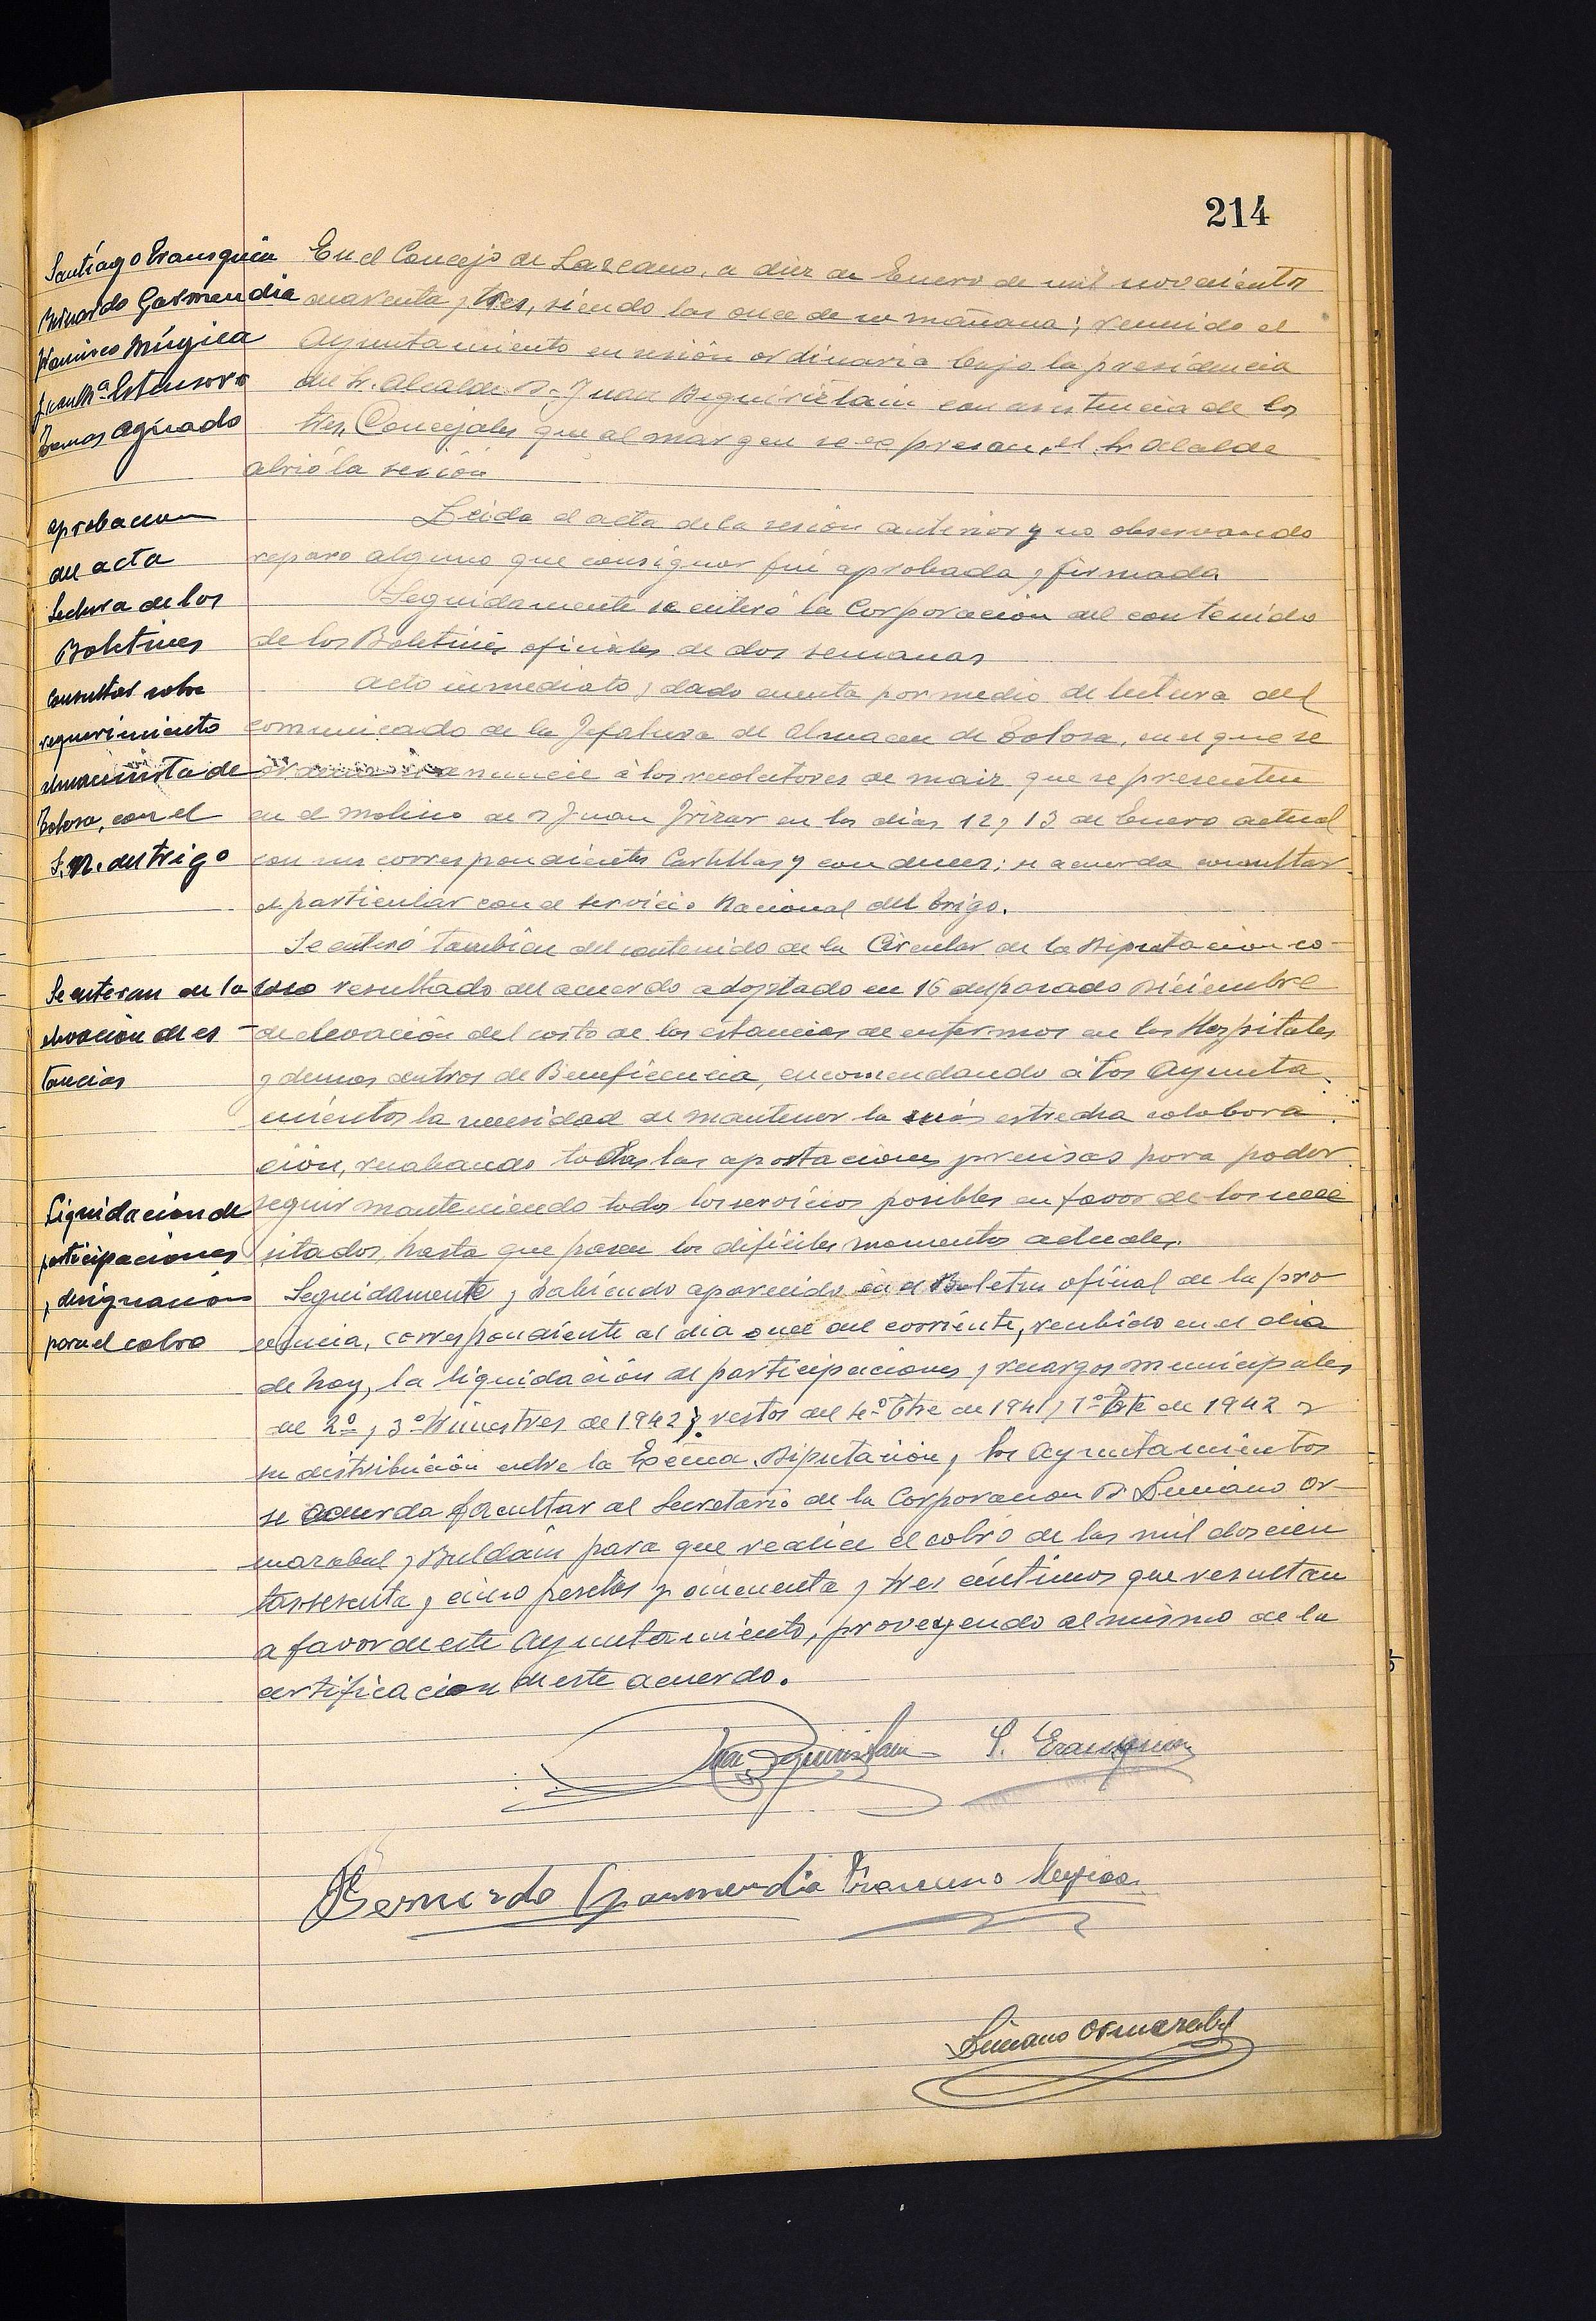 214
Santiago Irausquin
Bernardo Garmendia
Francisco Múgica
Juan Mª Estensoro
Tomas Aguado
En el Concejo de Lazcano, a diez de Enero de mil novecientos
cuarenta y tres, siendo las once de su mañana; reunido el
Ayuntamiento en sesión ordinaria bajo la presidencia
del Sr. Alcalde D. Juan Beguiristain con asistencia de los
Sres. Concejales que al margen se expresan, el Sr. Alcalde
abrió la sesión
aprobacion
del acta
Leida el acta de la sesión anterior y no observando
reparo alguno que consignar fué aprobada y firmada
Lectura de los
Boletines
Seguidamente se enteró la Corporación del contenido
de los Boletines oficiales de dos semanas
Consultar sobre
requerimiento
almacenista de
Tolosa, con el
S. N. del trigo
Acto inmediato y dado cuenta por medio de lectura del
comunicado de la Jefatura de Almacen de Tolosa, en el que se
anuncie á los recolectores de maiz que se presenten
en el molino de D Juan Irizar en los dias 12 y 13 de Enero actual
con sus correspondientes Cartillas y conduces; se acuerda consultar
el particular con el Servicio Nacional del Trigo.
Se enteran de la
elevación de es-
tancias
Se enteró tambien del contenido de la Circular de la Diputacion co-
mo resultado del acuerdo adoptado en 16 del pasado Diciembre
de elevación del costo de las estancias de enfermos en los Hospitales
y demas centros de Beneficencia, encomendando á los Ayunta
mientos la necesidad de mantener la más estrecha colabora
ción, recabando todas las aportaciones precisas para poder
seguir manteniendo todos los servicios posibles en favor de los nece
sitados, hasta que pasen los dificiles momentos actuales.
Liquidacion de
participaciones
y designacion
para el cobro
Seguidamente y habiendo aparecido en el Boletin oficial de la pro
vincia, correspondiente al dia once del corriente, recibido en el dia
de hoy, la liquidación de participaciones y recargos municipales
del 2º y 3º trimestres de 1942 y restos del 4º Tre de 1941 y 1º Tre de 1942 y
su distribución entre la Excma. Diputación y los Ayuntamientos
se acuerda facultar al Secretario de la Corporacion D. Luciano Or-
mazabal y Buldain para que realice el cobro de las mil doscien
tas sesenta y cinco pesetas y cincuenta y tres céntimos que resultan
a favor de este Ayuntamiento, proveyendo al mismo de la
certificacion de este acuerdo.
Juan Beguiristain S. Irausquin
Bernardo Garmendia Francisco Mugica
Luciano Ormazabal